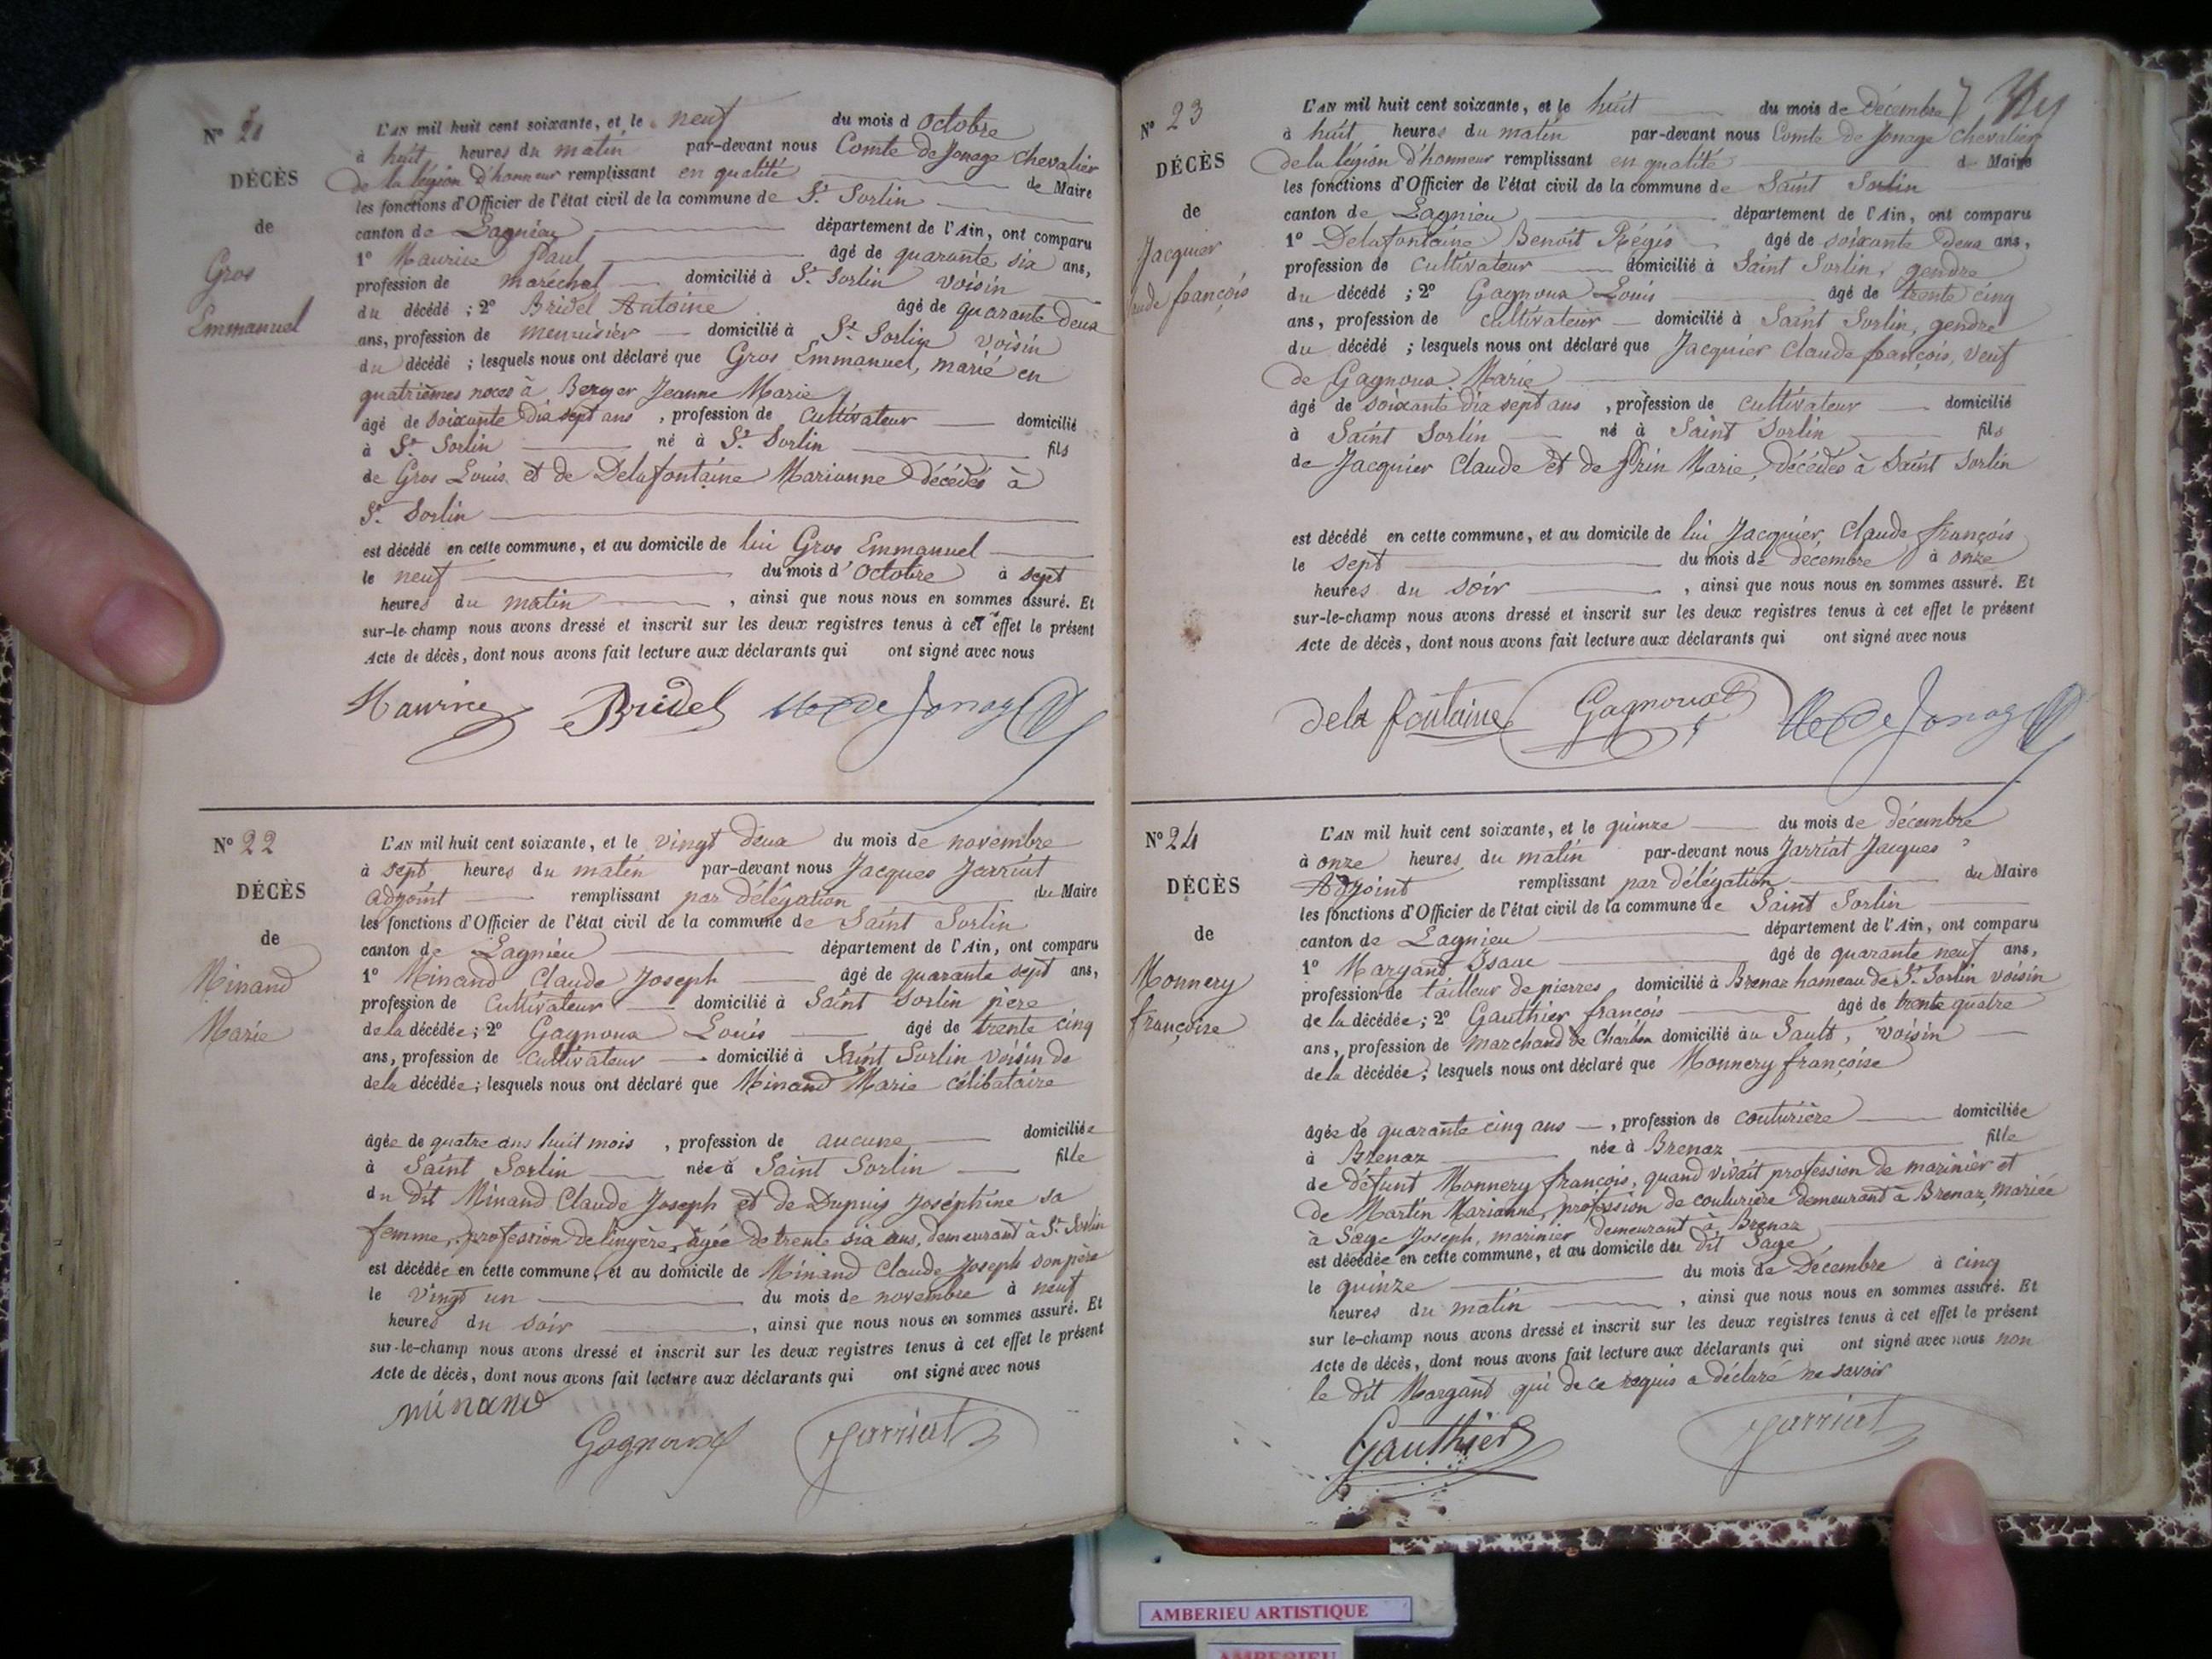 N° 21
DÉCÈS
de
Gros
Emmanuel
L'AN mil huit cent soixante, et le neuf du mois d'octobre
à huit heures du matin par-devant nous Comte de Jonage chevalier
de la légion d'honneur remplissant en qualité de Maire
les fonctions d'Officier de l'état civil de la commune de St. Sorlin
canton de Lagnieu département de l'Ain, ont comparu
1° Maurice Paul âgé de quarante six ans,
profession de maréchal domicilié à St. Sorlin voisin
du décédé ; 2° Bridel Antoine âgé de quarante deux
ans, profession de menuisier domicilié à St. Sorlin voisin
du décédé ; lesquels nous ont déclaré que Gros Emmanuel, marié en
quatrièmes noces à Berger Jeanne Marie
âgé de soixante dix sept ans, profession de cultivateur domicilié
à St. Sorlin né à St. Sorlin fils
de Gros Louis et de Delafontaine Marianne décédés à
St. Sorlin
est décédé en cette commune, et au domicile de lui Gros Emmanuel
le neuf du mois d'octobre à sept
heures du matin, ainsi que nous nous en sommes assuré. Et
sur-le-champ nous avons dressé et inscrit sur les deux registres tenus à cet effet le présent
Acte de décès, dont nous avons fait lecture aux déclarants qui ont signé avec nous
Maurice Bridel de Jonage
N° 22
DÉCÈS
de
Minand
Marie
L'AN mil huit cent soixante, et le vingt deux du mois de novembre
à sept heures du matin par-devant nous Jacques Jarriat
adjoint remplissant par délégation du Maire
les fonctions d'Officier de l'état civil de la commune de Saint Sorlin
canton de Lagnieu département de l'Ain, ont comparu
1° Minand Claude Joseph âgé de quarante sept ans,
profession de cultivateur domicilié à Saint Sorlin père
de la décédée ; 2° Gagnoux Louis âgé de trente cinq
ans, profession de cultivateur domicilié à Saint Sorlin voisin de
de la décédée ; lesquels nous ont déclaré que Minand Marie célibataire
âgée de quatre ans huit mois, profession de aucune domiciliée
à Saint Sorlin née à Saint Sorlin fille
du dit Minand Claude Joseph et de Dupuis Joséphine sa
femme, profession de lingère, âgée de trente six ans, demeurant à St. Sorlin
est décédée en cette commune, et au domicile de Minand Claude Joseph son père
le vingt un du mois de novembre à neuf
heures du soir, ainsi que nous nous en sommes assuré. Et
sur-le-champ nous avons dressé et inscrit sur les deux registres tenus à cet effet le présent
Acte de décès, dont nous avons fait lecture aux déclarants qui ont signé avec nous
minand
Gagnoux Jarriat
N° 23
DÉCÈS
de
Jacquier
ude françois
L'AN mil huit cent soixante, et le huit du mois de Décembre
à huit heures du matin par-devant nous Comte de Jonage Chevalier
de la légion d'honneur remplissant en qualité de Maire
les fonctions d'Officier de l'état civil de la commune de Saint Sorlin
canton de Lagnieu département de l'Ain, ont comparu
1° Delafontaine Benoit Régis âgé de soixante deux ans,
profession de cultivateur domicilié à Saint Sorlin, gendre
du décédé ; 2° Gagnoux Louis âgé de trente cinq
ans, profession de cultivateur domicilié à Saint Sorlin, gendre
du décédé ; lesquels nous ont déclaré que Jacquier Claude françois, veuf
de Gagnoux Marie
âgé de soixante dix sept ans, profession de cultivateur domicilié
à Saint Sorlin né à Saint Sorlin fils
de Jacquier Claude et de Prin Marie, décédés à Saint Sorlin
est décédé en cette commune, et au domicile de lui Jacquier Claude françois
le sept du mois de décembre à onze
heures du soir, ainsi que nous nous en sommes assuré. Et
sur-le-champ nous avons dressé et inscrit sur les deux registres tenus à cet effet le présent
Acte de décès, dont nous avons fait lecture aux déclarants qui ont signé avec nous
dela fontaine Gagnoux de Jonage
N° 24
DÉCÈS
de
Monnery
françoise
L'AN mil huit cent soixante, et le quinze du mois de décembre
à onze heures du matin par-devant nous Jarriat Jacques
Adjoint remplissant par délégation du Maire
les fonctions d'Officier de l'état civil de la commune de Saint Sorlin
canton de Lagnieu département de l'Ain, ont comparu
1° Margand Isaac âgé de quarante neuf ans,
profession de tailleur de pierres, domicilié à Brenaz hameau de St. Sorlin voisin
de la décédée ; 2° Gauthier françois âgé de trente quatre
ans, profession de marchand de Charbon domicilié au Sault, voisin
de la décédée ; lesquels nous ont déclaré que Monnery françoise
âgée de quarante cinq ans, profession de couturière domiciliée
à Brenaz née à Brenaz fille
de défunt Monnery françois, quand vivait profession de marinier et
de Martin Marianne, profession de couturière demeurant à Brenaz, mariée
à Sage Joseph, marinier demeurant à Brenaz
est décédée en cette commune, et au domicile du dit Sage
le quinze du mois de Décembre à cinq
heures du matin, ainsi que nous nous en sommes assuré. Et
sur le-champ nous avons dressé et inscrit sur les deux registres tenus à cet effet le présent
Acte de décès, dont nous avons fait lecture aux déclarants qui ont signé avec nous non
le dit Margand qui de ce requis a déclaré ne savoir
Gauthier Jarriat
AMBERIEU ARTISTIQUE
AMBERIEU